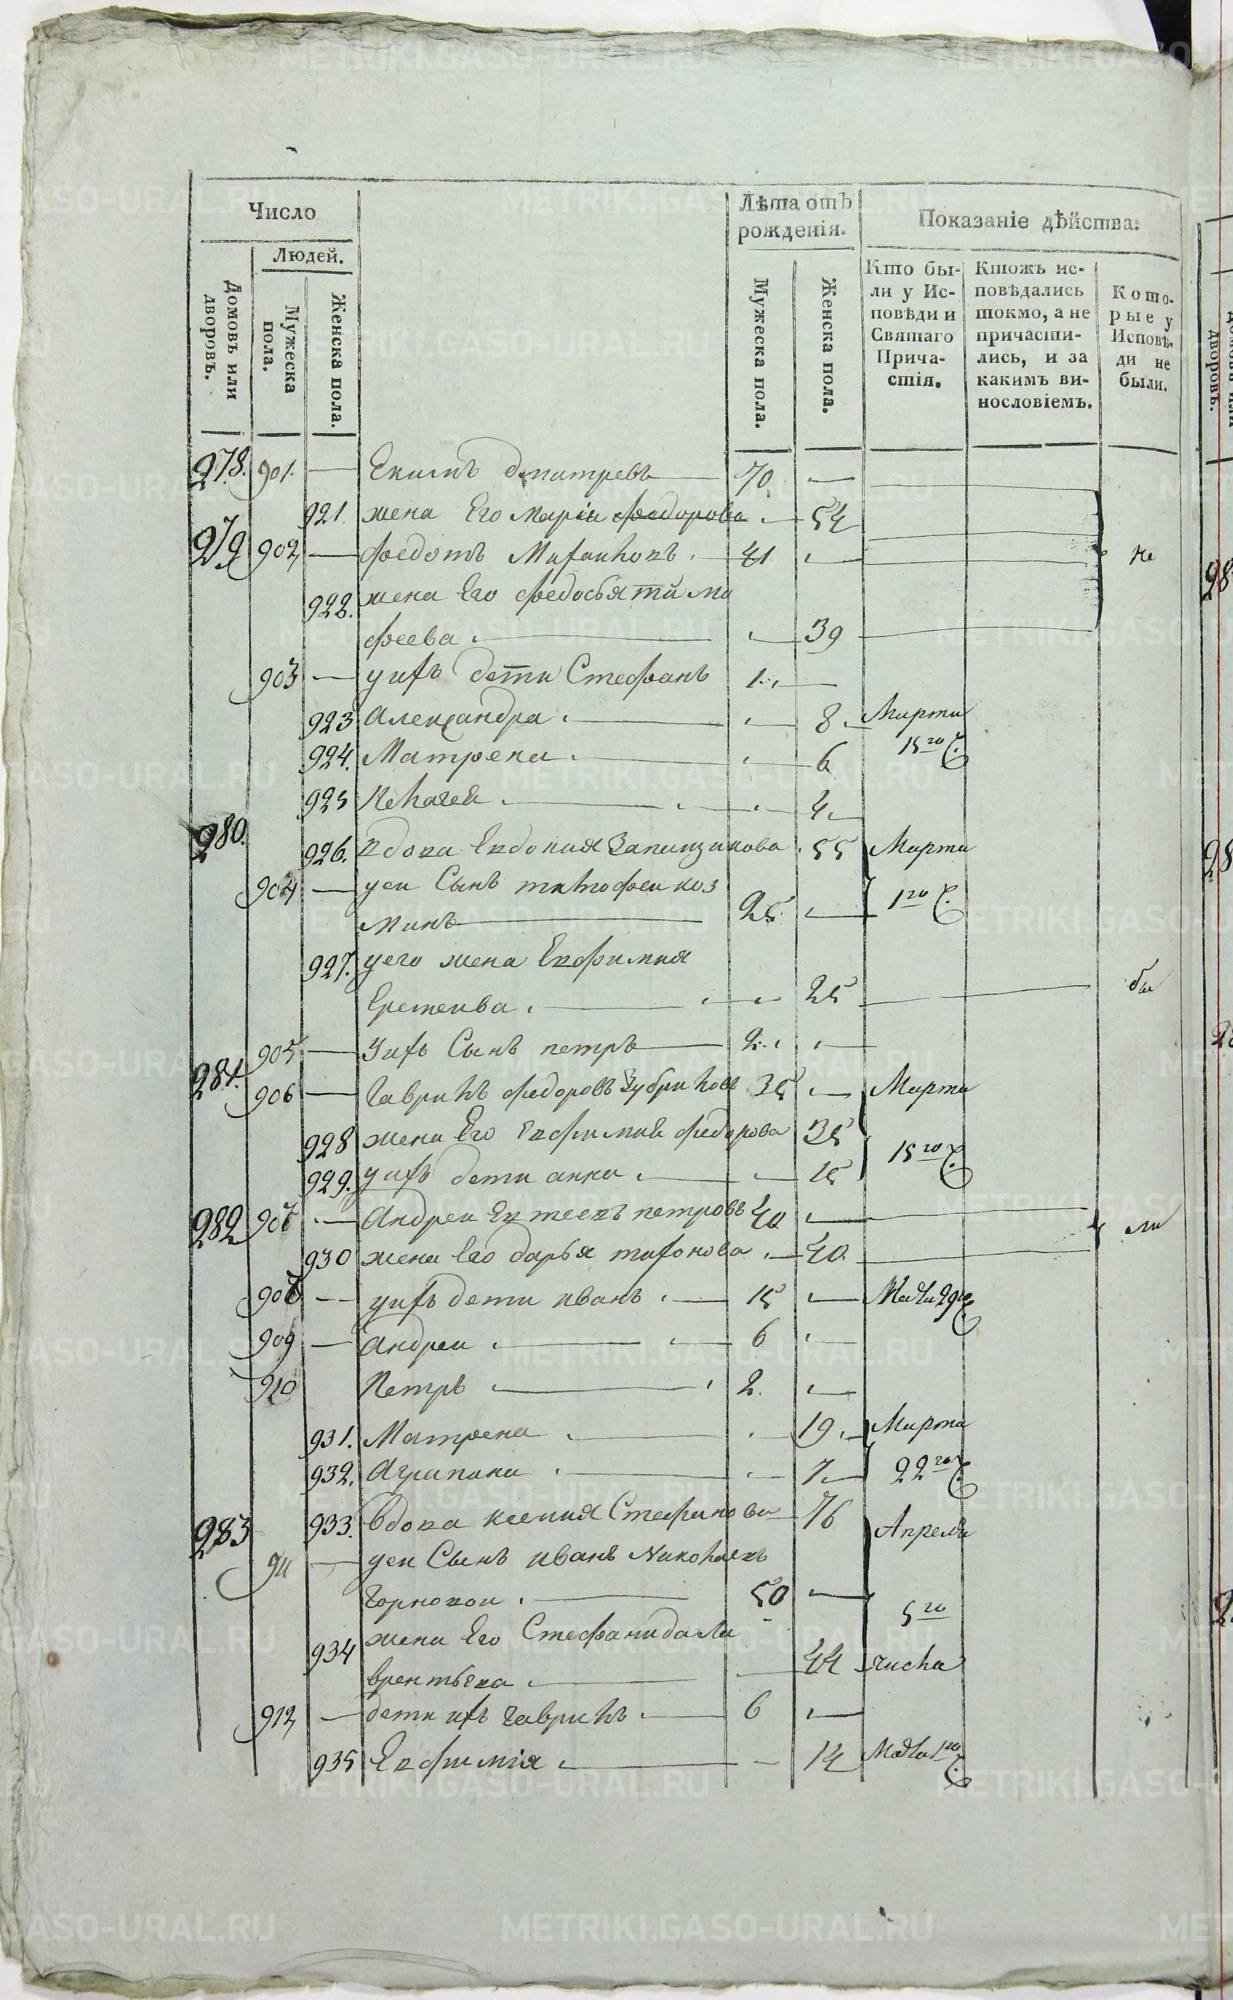 Число
Людей.
Домовъ или дворовъ.
Мужеска пола.
Женска пола.
Лѣта отъ рожденія.
Мужеска пола.
Женска пола.
Показаніе дѣйства:
Кто были у Исповѣди и Святаго Причастія.
Ктожъ исповѣдались токмо, а не причастились, и за какимъ винословіемъ.
Которые у Исповѣди не были.
278. 901. — Екимъ дмитревъ — 70. —
921. жена Его Марія федорова — 54
279 902 — федотъ 41 — не
922. жена Его федосья тими
феева — 39
903 — у ихъ дети Стефанъ 1 —
923 Александра — 8 Марта
924. Матрена — 6 15го Ч.
925 4
280. 926. вдова Евдокия 55 Марта
904 — у еи Сынъ тимофеи коз
минъ — 25 — 1го Ч.
927. у его жена Евфимия
25 — бы
905 — У ихъ Сынъ петръ — 2 —
281. 906 — Гаврилъ федоровъ 35 — Марта
928 жена Его Евфимия федорова 35
929. у ихъ дети анна — 15 15го Ч.
282 907 — Андреи петровъ 40 —
930 жена Его дарья 40 — ли
908 — у ихъ дети иванъ — 15 —
909 — Андреи — 6 —
910 Петръ — 2. —
931. Матрена — 19 Марта
932. Аграпина — 7 22го Ч.
283 933. Вдова ксения Стефанова 76 Апреля
911 — у еи Сынъ иванъ
50 — 5го
934 жена Его Стефанида ла
врентьева — 44 числа
912 — дети ихъ Гаврилъ — 6 —
935 Евфимія — 14
METRIKI.GASO-URAL.RU